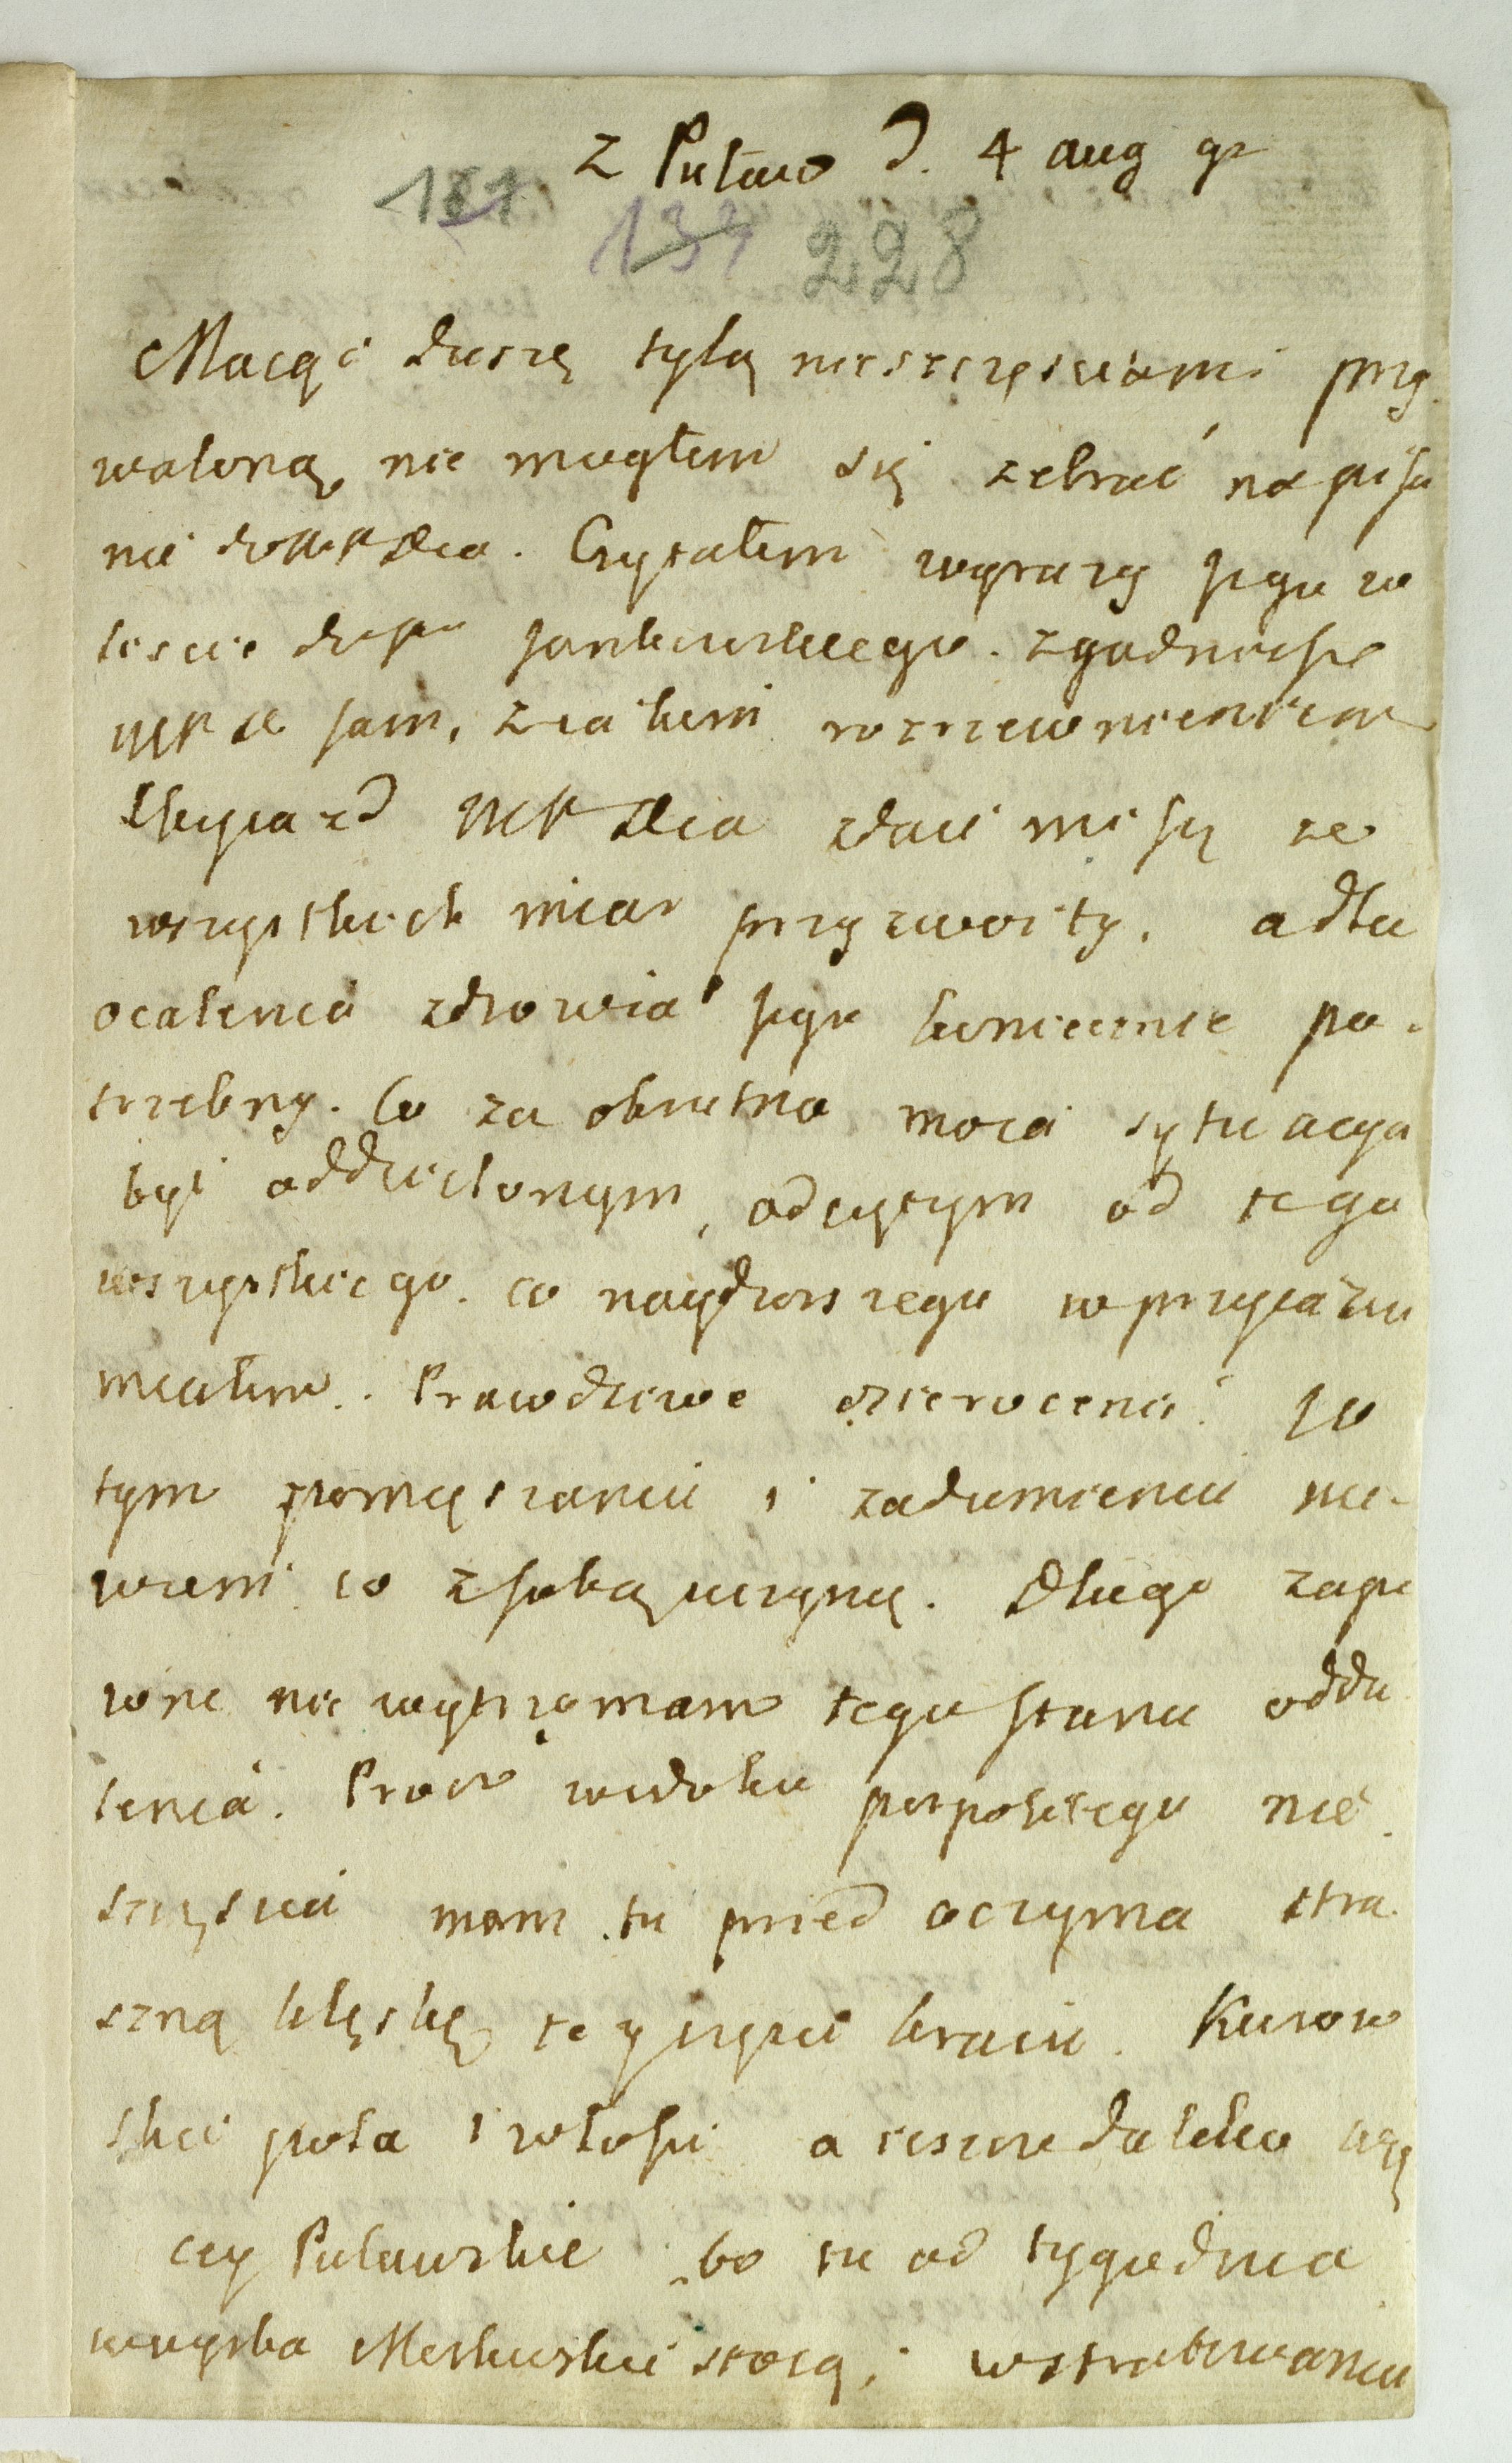 z Puław d. 4 aug 92
181
139 228
Maiąc duszę tylą nieszczęściami przy
waloną, nie mogłem się zebrać na pisa
nie do WKPDcia. Czytałem wyrazy jego w
liście do Xa Jankowskiego. Zgadniesz
WKPD sam, z iakiem rozrzewnieniem
Wyiazd WKPDcia zdaie mi się ze
wszystkich miar przyzwoity, a dla
ocalenia zdrowia jego koniecznie po-
trzebny. Co za okrutna moia sytuacya
być oddzielonym, odciętym od tego
wszystkiego co naydroższego w przyiaźni
miałem. Prawdziwe osierocenie! W
tym pomięszaniu i zadumieniu nie-
wiem co z sobą uczynię. Długo zape
wne nie wytrzymam tego stanu odda
lenia. Procz widoku pospolitego nie
szczęścia mam tu przed oczyma stra
szną klęskę tey części kraiu. Kurow
skie pola i włości a ieszcze daleko wię
cey Puławskie bo tu od tygodnia
woyska Moskwskie stoią, i w stratowaniu